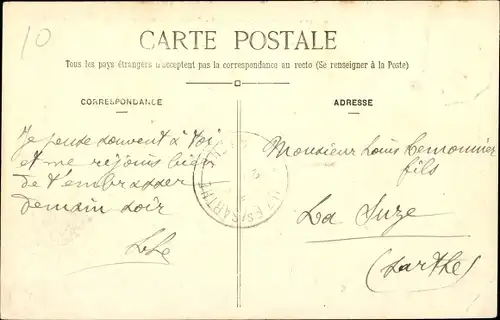 10
CARTE POSTALE
Tous les pays étrangers n'acceptent pas la correspondance au recto (Se renseigner à la Poste)
CORRESPONDANCE
Je pense souvent à toi
et me réjouis bien
de t'embrasser
demain soir
ADRESSE
Monsieur Louis Lemonnier
fils
La Suze
(Sarthe)
SARTHE